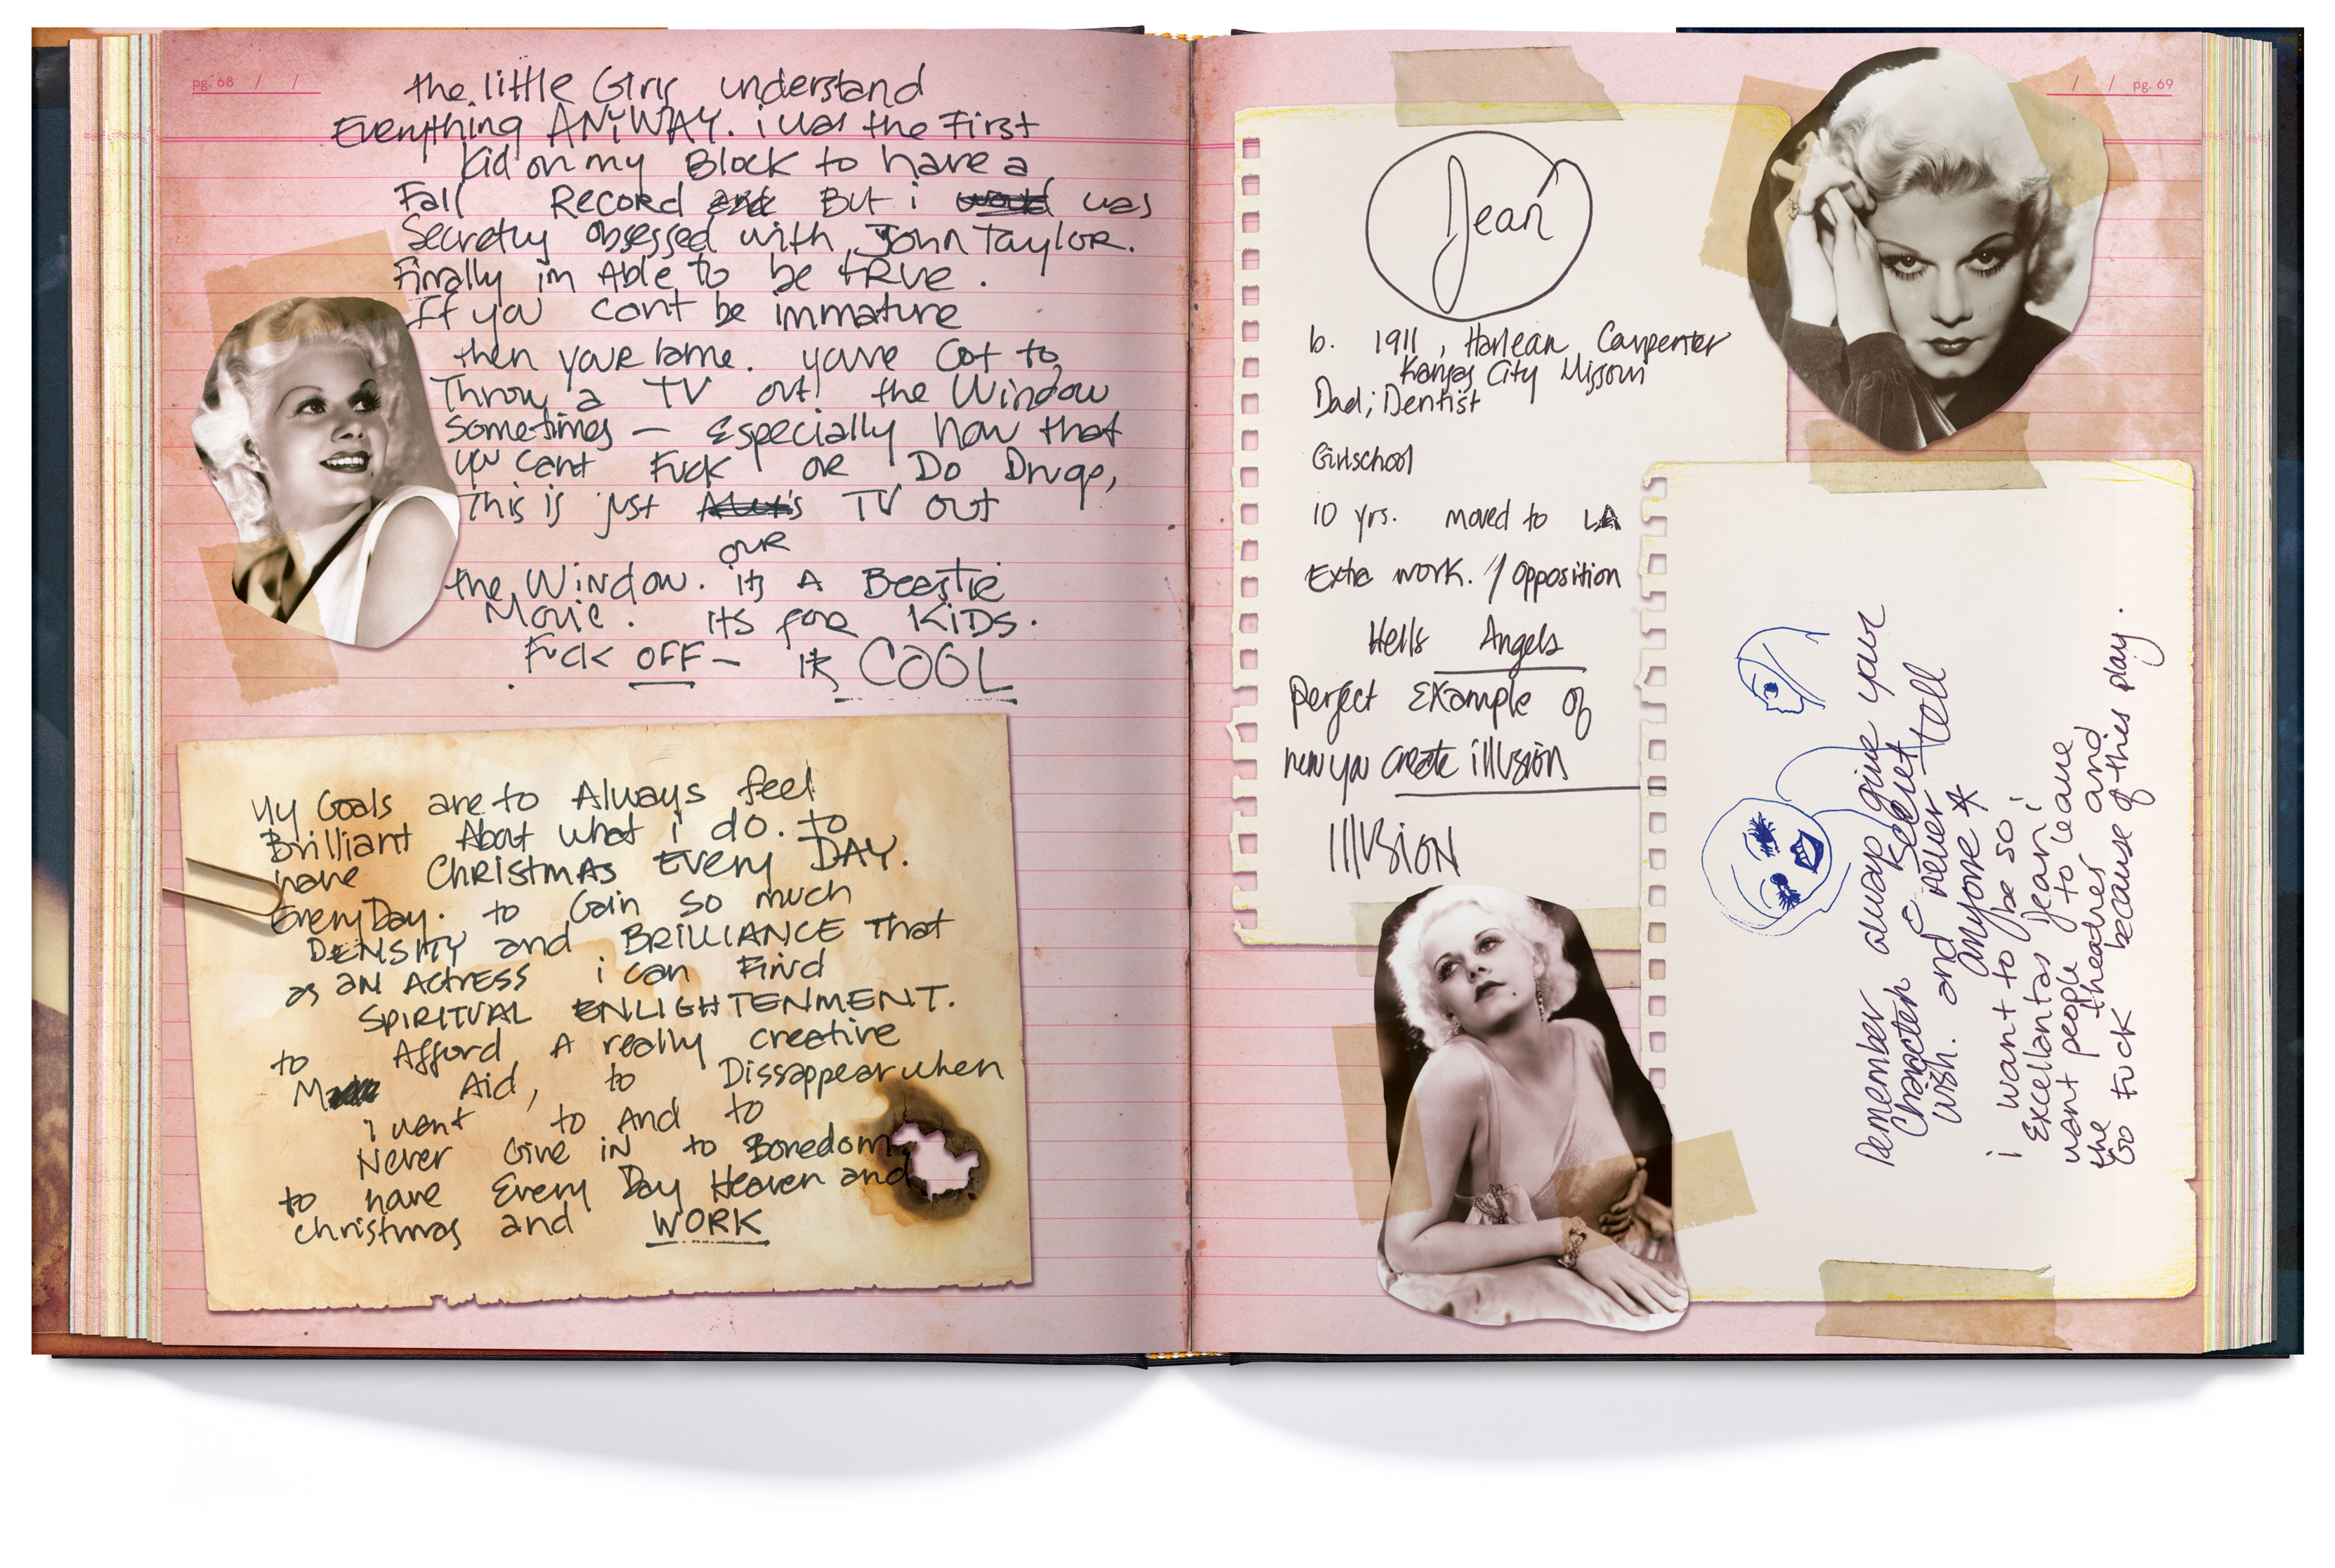 pg. 68 / /
the little Girls understand
Everything ANYWAY. i was the First
Kid on my Block to have a
Fall Record and But i would was
Secretly obsessed with John Taylor.
Finally im Able to be tRue.
If you cant be immature
then your lame. youve Got to
Throw a TV out the Window
Sometimes — Especially now that
you cant Fuck OR Do Drugs,
This is just TV out
our
the Window. its A Beastie
Movie. its for KiDS.
Fuck OFF — its COOL
My Goals are to Always feel
Brilliant About what i do. to
have Christmas Every DAY.
Every Day. to Gain so much
DENSITY and BRILLIANCE that
as an Actress i can Find
SPIRITUAL ENLIGHTENMENT.
to Afford A really creative
Aid, to Dissappear when
i want to And to
Never Give in to Boredom
to have Every Day Heaven and
christmas and WORK
/ / pg. 69
Jean
b. 1911, Harlean Carpenter
Kansas City Missouri
Dad; Dentist
Girlschool
10 yrs. moved to LA
Extra work. / opposition
Hells Angels
perfect Example of
how you create illusion
Illusion
Remember always give your
Character a secret
wish. and never tell
anyone *
i want to be so
Excellant as Jean i
want people to leave
the theatre and
Go fuck because of this play.